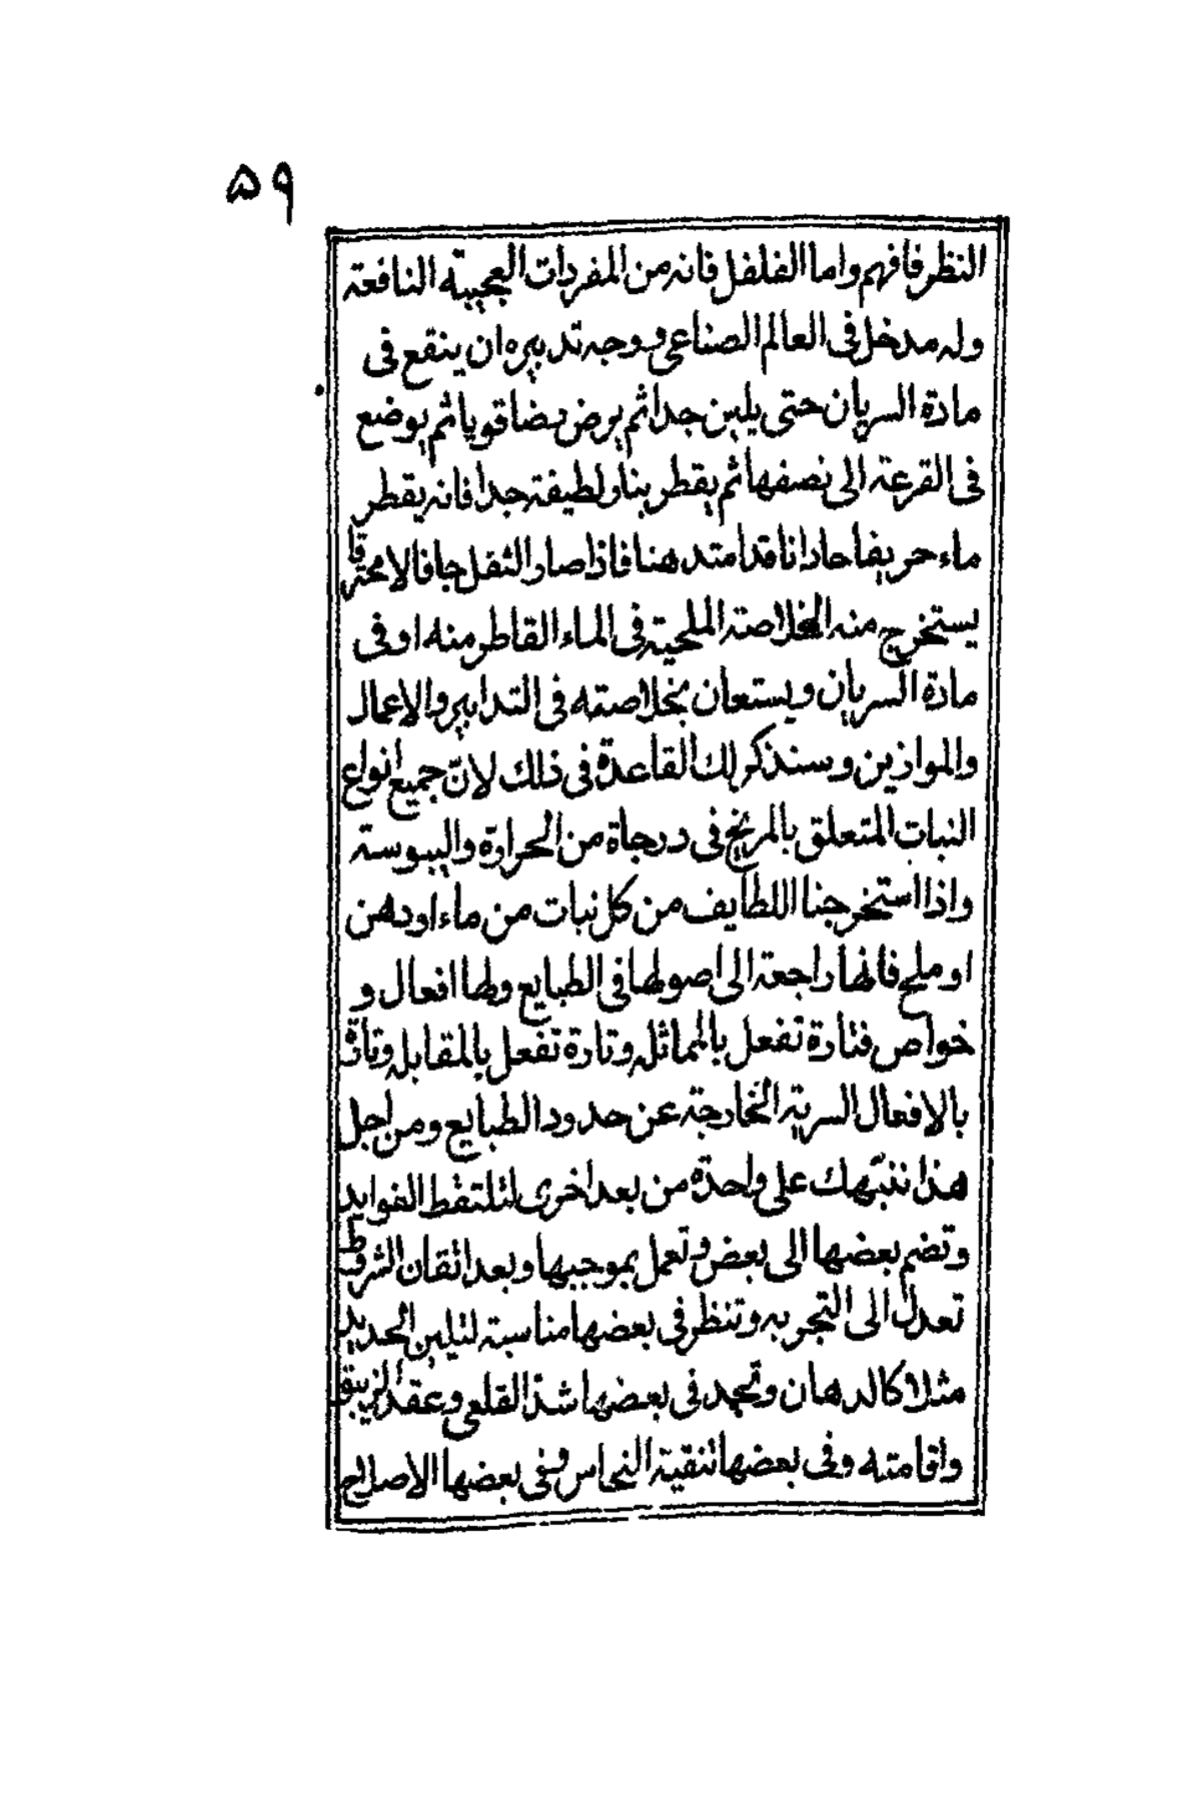 ۵۹
النظر فافهم واما الفلفل فانه من المفردات العجيبة النافعة
وله مدخل فى العالم الصناعى ووجه تدبيره ان ينقع فى
مادة السريان حتى يلين جدا ثم يرض رضا قويا ثم يوضع
فى القرعة الى نصفها ثم يقطر بنار لطيفة جدا فانه يقطر
ماء حريفا حادا نافدا متدهنا فاذا صار الثفل جافا لا محترقا
يستخرج منه الخلاصة الملحية فى الماء القاطر منه او فى
مادة السريان ويستعان بخلاصته فى التدابير والاعمال
والموازين وسنذكر لك القاعدة فى ذلك لانّ جميع انواع
النبات المتعلق بالمريخ فى درجاة من الحرارة واليبوسة
واذا استخرجنا اللطايف من كل نبات من ماء او دهن
او ملح فانها راجعة الى اصولها فى الطبايع ولها افعال و
خواص فتارة تفعل بالمماثله وتارة تفعل بالمقابله وتارة
بالافعال السرية الخارجة عن حدود الطبايع ومن اجل
هذا ننبّهك على واحدة من بعد اخرى لتلتقط الفوايد
وتضم بعضها الى بعض وتعمل بموجبها وبعد اتقان الشروط
تعدل الى التجربه وتنظر فى بعضها مناسبة لتليين الحديد
مثلا كالدهان وتجد فى بعضها شدّ القلعى وعقد الزيبق
واقامته وفى بعضها تنقية النحاس وفى بعضها الاصلاح